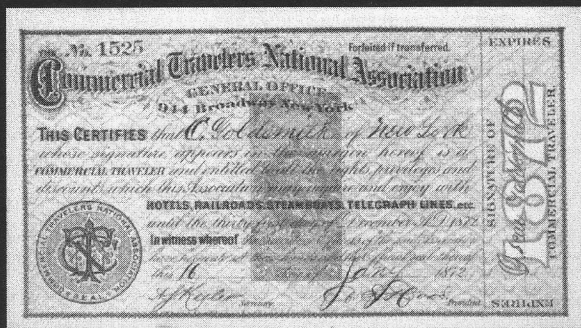 No. 1525
Forfeited if transferred.
Commercial Travelers National Association
GENERAL OFFICE
944 Broadway New York
THIS CERTIFIES that C. Goldsmith of New York
whose signature appears in the margin hereof is a
COMMERCIAL TRAVELER and entitled to all the rights privileges and
discount which this Association may acquire and enjoy with
HOTELS, RAILROADS, STEAMBOATS, TELEGRAPH LINES, etc.
until the thirty first day of December A.D. 1872
In witness whereof
this 16 day of Jany 1872
Secretary
President
COMMERCIAL TRAVELERS NATIONAL ASSOCIATION
SEAL
EXPIRES
1872
SIGNATURE OF
COMMERCIAL TRAVELER
EXPIRES